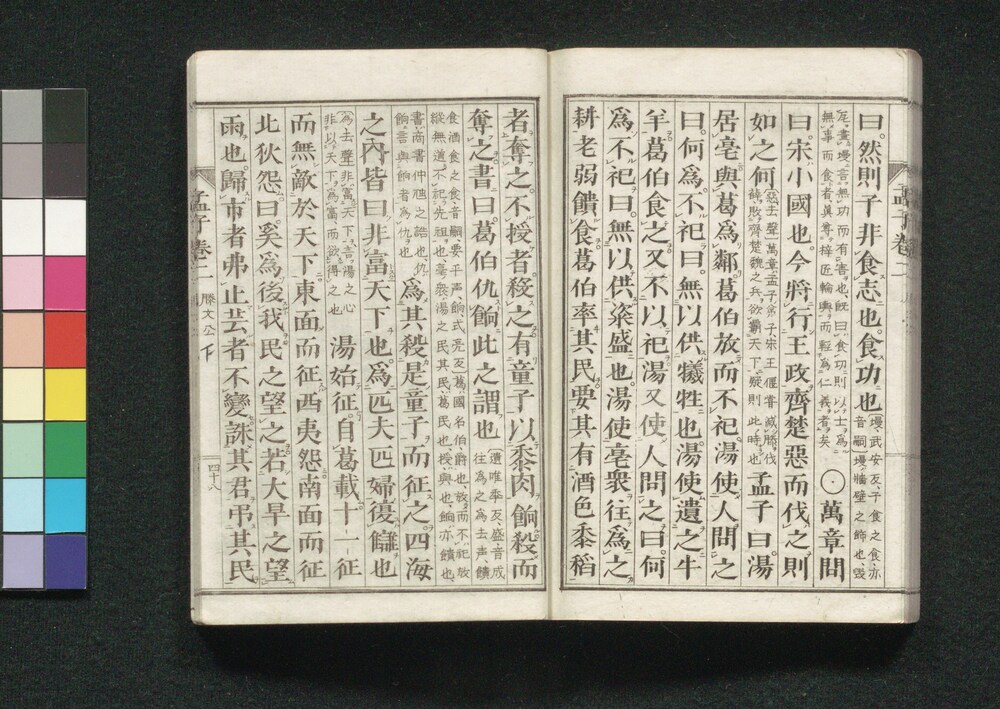 曰。然則子非食志也。食功也墁武安反子食之食亦音嗣墁牆壁之飾也毀
瓦畫墁言無功而有害也既曰食功則以士爲無事而食者眞尊梓匠輪輿而輕爲仁義者矣○萬章問
曰。宋小國也。今將行王政齊楚惡而伐之則
如之何惡去聲萬章孟子弟子宋王偃嘗滅滕伐薛敗齊楚魏之兵欲霸天下疑則此時也孟子曰湯
居亳與葛爲鄰葛伯放而不祀湯使人問之
曰。何爲不祀曰。無以供犧牲也。湯使遺之牛
羊葛伯食之又不以祀湯又使人問之曰。何
爲不祀曰無以供粢盛也。湯使亳衆往爲之
耕老弱饋食葛伯率其民要其有酒色黍稻
孟子卷二
者奪之。不授者殺之有童子以黍肉餉殺而
奪之書曰葛伯仇餉此之謂也遺唯季反盛音成往爲之爲去声饋
食酒食之食音嗣要平声餉式亮反葛國名伯爵也放而不祀放縱無道不祀先祖也亳衆湯之民其民葛民也授與也餉亦饋也
書商書仲虺之誥也仇餉言與餉者爲仇也爲其殺是童子而征之。四海
之內皆曰非富天下也。爲匹夫匹婦復讎也
爲去聲非富天下言湯之心非以天下爲富而欲得之也湯始征。自葛載十一征
而無敵於天下東面而征西夷怨南面而征
北狄怨。曰。奚爲後我民之望之若大旱之望
雨也歸市者弗止芸者不變誅其君弔其民
孟子卷二 滕文公下 四十八